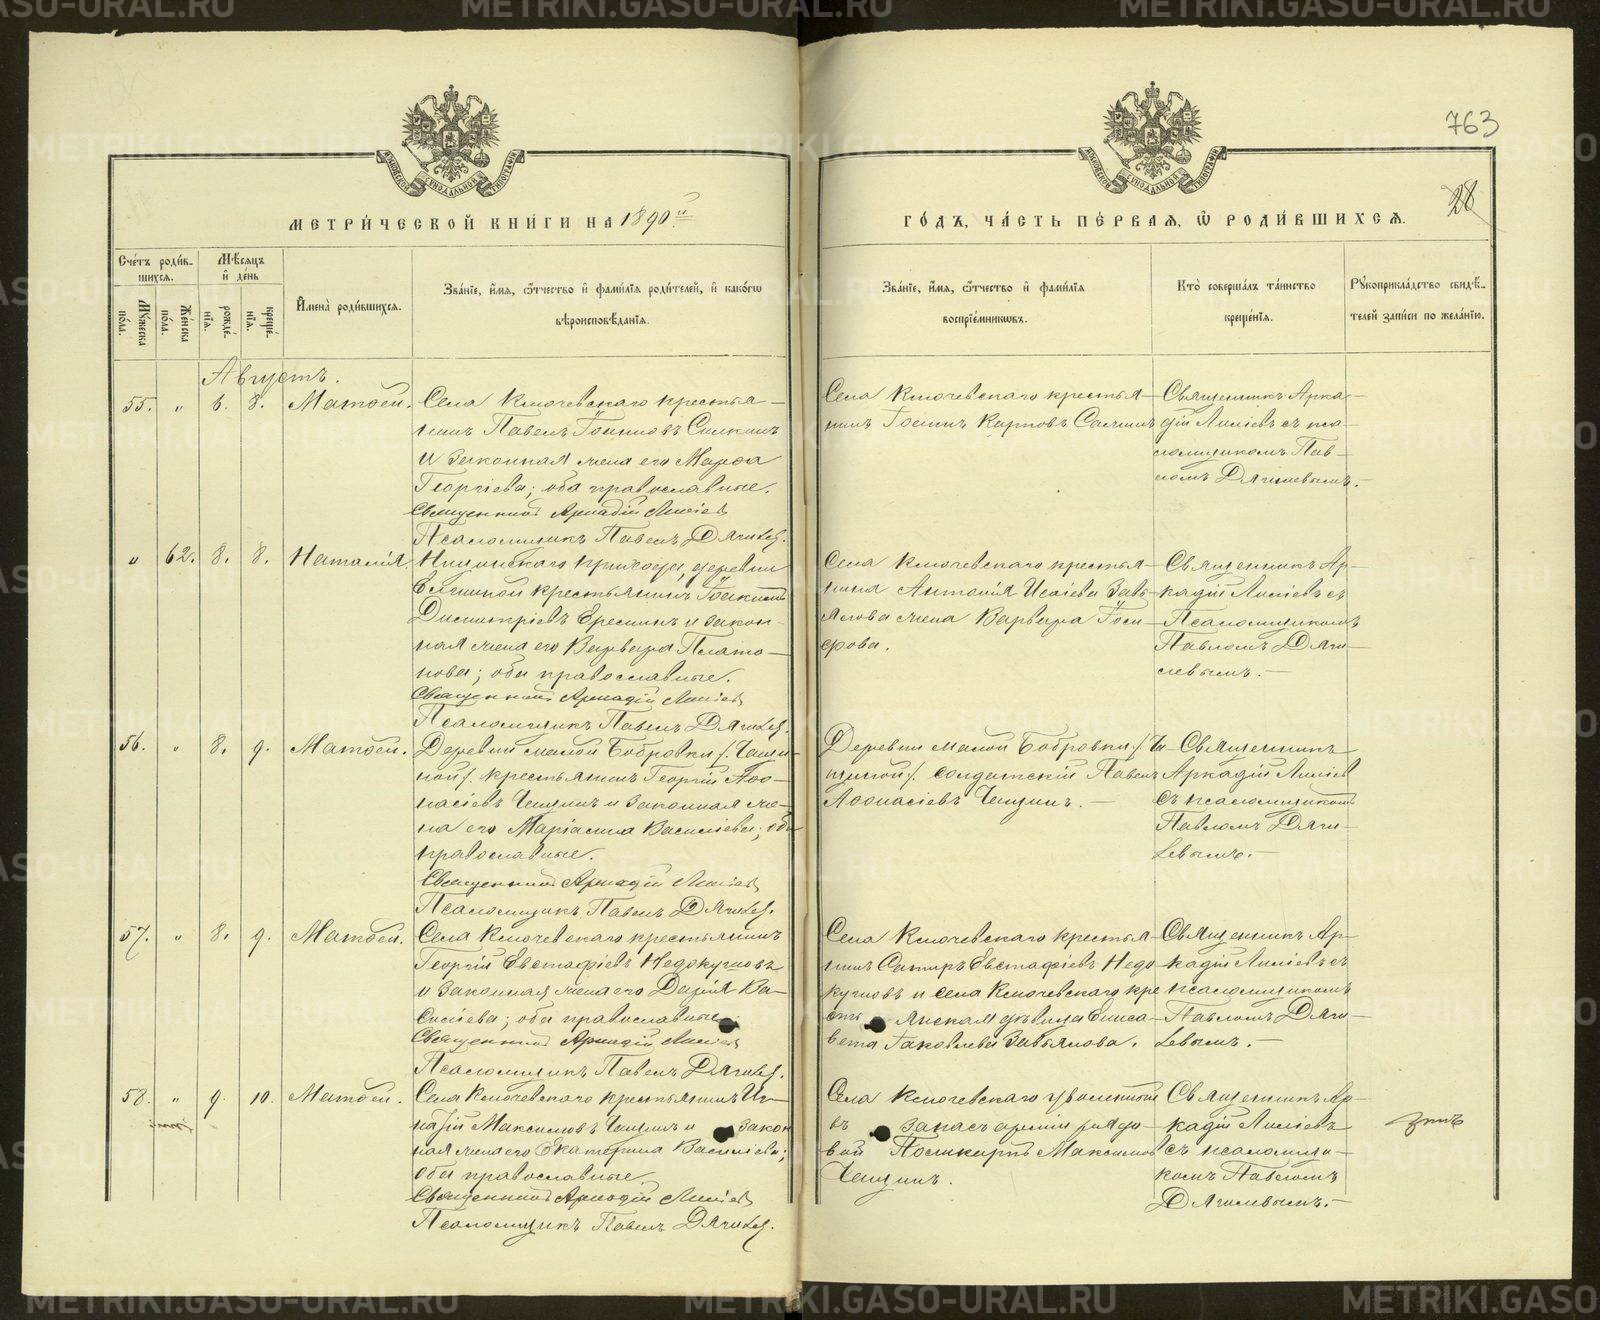 763
28
МЕТРИ́ЧЕСКОЙ КНИ́ГИ НА 1890й
ГО́ДЪ, ЧА́СТЬ ПЕ́РВАЯ, Ѽ РОДИ́ВШИХСЯ.
Сче́тъ роди́в-
шихся.
Мѣсяцъ
и де́нь
Мꙋжеска по́ла.
Же́нска по́ла.
рожде́-
нїя.
креще́-
нїя.
Имена̀ роди́вшихся.
Зва́нїе, и́мя, ѻ́тчество и фами́лїя роди́телей, и како́гѡ
вѣроисповѣ́данїя.
Зва́нїе, и́мя, ѻ́тчество и фами́лїя
воспрїе́мникѡвъ.
Кто̀ соверша́лъ та́инство
креще́нїя.
Рꙋкоприкла́дство свидѣ́-
телей за́писи по жела́нїю.
Августъ.
55. " 6. 8. Матѳей.
Села Ключевскаго крестья-
нинъ Павелъ Іоанновъ
и законная жена его Марѳа
Георгіева; оба православные.
Священникъ Аркадій
Псаломщикъ Павелъ Дягилев.
Села Ключевскаго крестья-
нинъ Іоаннъ Карповъ
Священникъ Арка-
дій съ пса-
ломщикомъ Пав-
ломъ Дягилевымъ.-
" 62. 8. 8. Наталія.
прихода, деревни
крестьянинъ
Димитріевъ Ереминъ и закон-
ная жена его Варвара Плато-
нова; оба православные.
Священникъ Аркадій
Псаломщикъ Павелъ Дягилев.
Села Ключевскаго крестья-
нина Исаіева Завь-
ялова жена Варвара
Священникъ Ар-
кадій съ
Псаломщикомъ
Павломъ Дяги-
левымъ.-
56. " 8. 9. Матѳей.
Деревни малой Бобровки /
крестьянинъ Георгій Аѳо-
насіевъ Чещинъ и законная же-
на его Маріанна Василіева; оба
православные.
Священникъ Аркадій
Псаломщикъ Павелъ Дягилев.
Деревни малой Бобровки /
солдатскій Павелъ
Аѳонасіевъ Чещинъ.-
Священникъ
Аркадій
съ псаломщикомъ
Павломъ Дяги-
левымъ.-
57. " 8. 9. Матѳей.
Села Ключевскаго крестьянинъ
Георгій Евстафіевъ Недокушовъ
и законная жена его Дарія Ва-
силіева; оба православные
Священникъ Аркадій
Псаломщикъ Павелъ Дягилев.
Села Ключевскаго крестья-
нинъ Евстафіевъ Недо-
кушовъ и села Ключевскаго кре
стьянская дѣвица Елиса-
вета Іаковлева Завьялова.
Священникъ Ар-
кадій съ
псаломщикомъ
Павломъ Дяги-
левымъ.-
58. " 9. 10. Матѳей.
Села Ключевскаго крестьянинъ Иг-
натій Максимовъ Чещинъ и закон
ная жена его Екатерина Василіева;
оба православные
Священникъ Аркадій
Псаломщикъ Павелъ Дягилев.
Села Ключевскаго уволенный
въ запасъ арміи рядо-
вой Максимовъ
Чещинъ.
Священникъ Ар-
кадій
съ псаломщи-
комъ Павломъ
Дягилевымъ.-